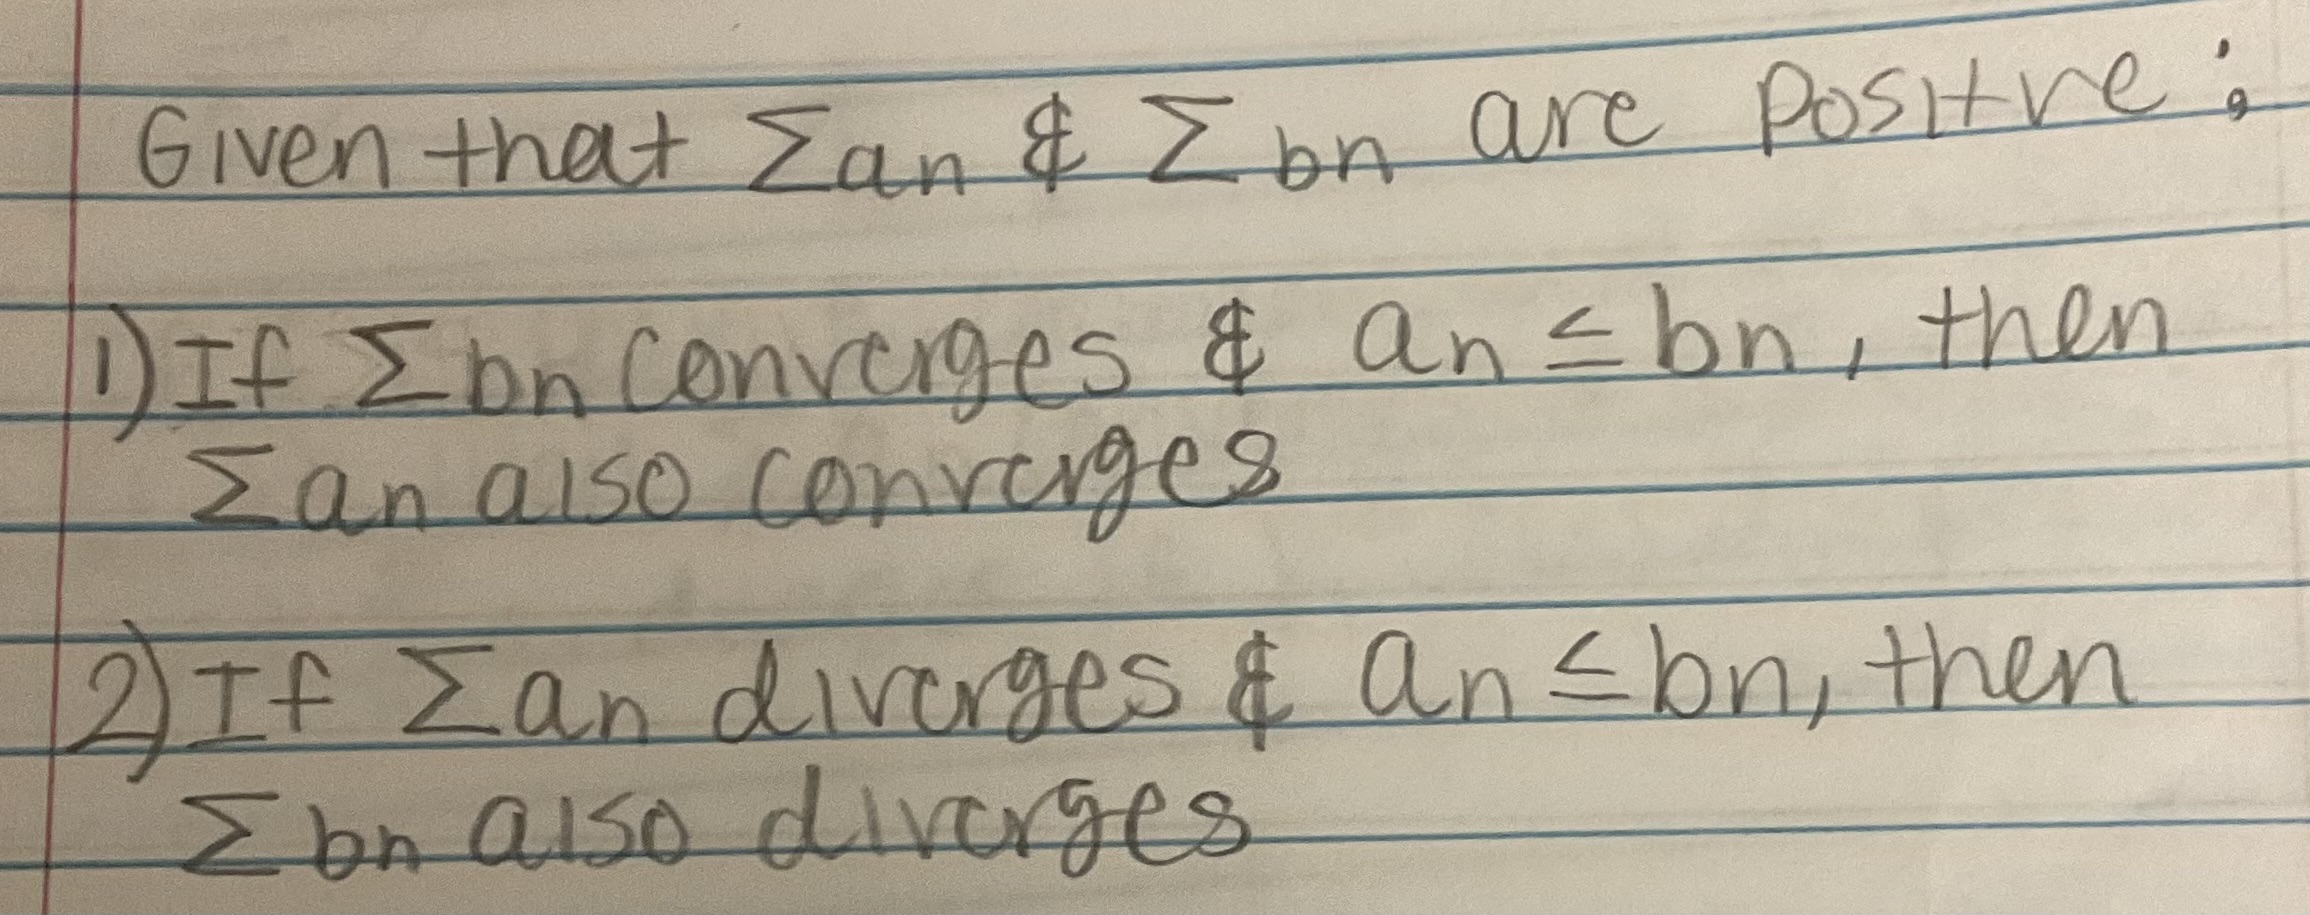 Given that Σan & Σbn are positive:
1) If Σbn converges & an ≤ bn, then
Σan also converges
2) If Σan diverges & an ≤ bn, then
Σbn also diverges